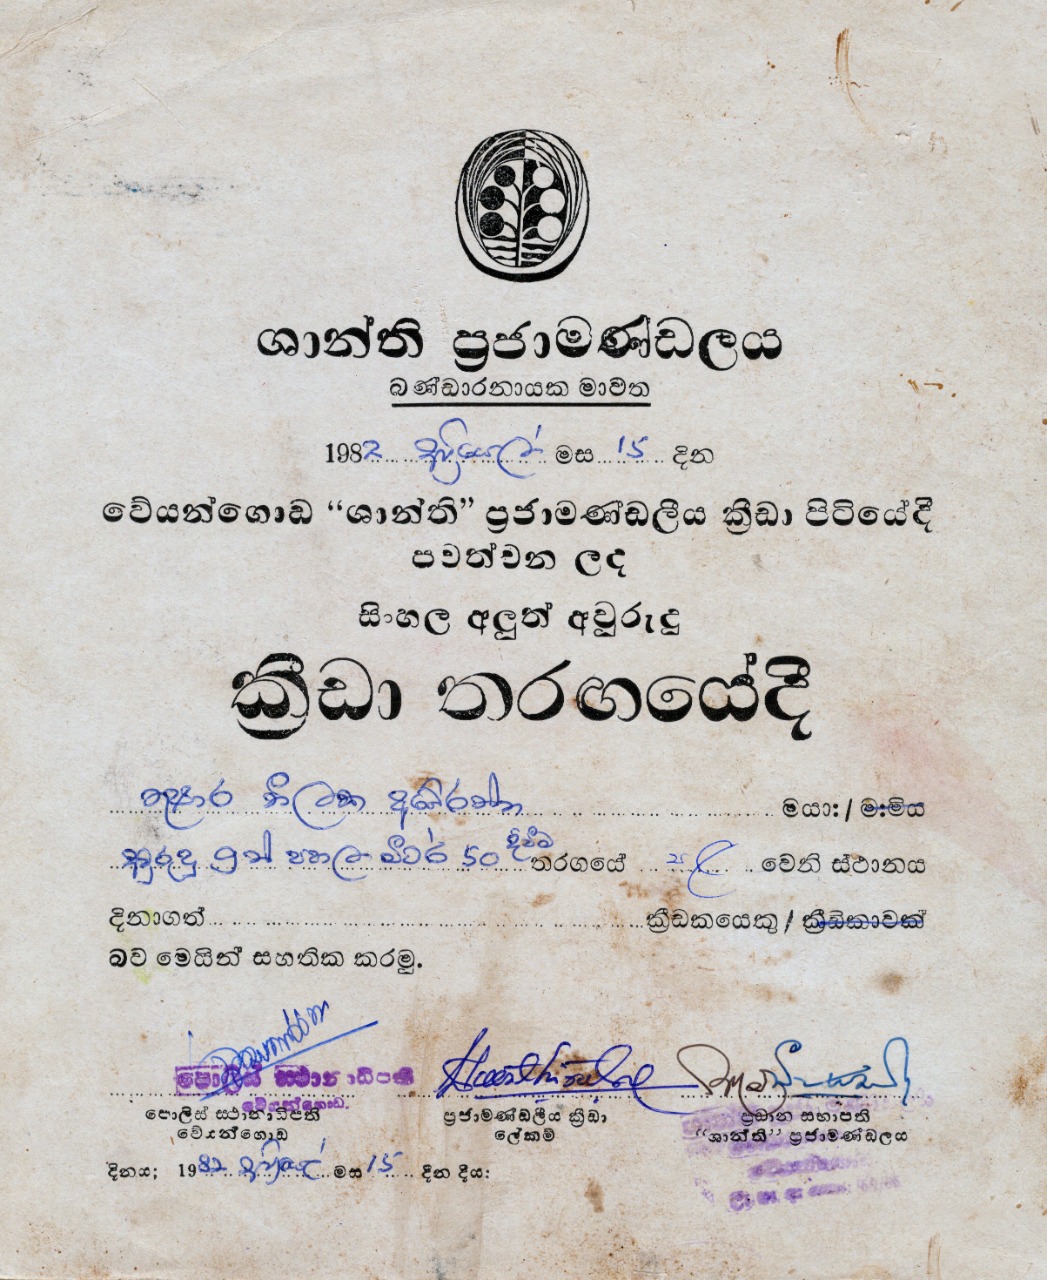 ශාන්ති ප්‍රජාමණ්ඩලය
බණ්ඩාරනායක මාවත
1982 අප්‍රියෙල් මස 15 දින
වේයන්ගොඩ “ශාන්ති” ප්‍රජාමණ්ඩලීය ක්‍රීඩා පිටියේදී
පවත්වන ලද
සිංහල අලුත් අවුරුදු
ක්‍රීඩා තරගයේදී
තුෂාර තිලක මයා:/ මෙමිය
අවුරුදු 9 න් පහල මීටර් 50 දිවීම තරගයේ වෙනි ස්ථානය
දිනාගත් ක්‍රීඩකයෙකු / ක්‍රීඩිකාවක්
බව මෙයින් සහතික කරමු.
පොලිස් ස්ථානාධිපති
වේයන්ගොඩ.
පොලිස් ස්ථානාධිපති ප්‍රජාමණ්ඩලීය ක්‍රීඩා ප්‍රධාන සභාපති
වේයන්ගොඩ ලේකම් “ශාන්ති” ප්‍රජාමණ්ඩලය
දිනය; 1982 අප්‍රියෙල් මස 15 දින දීය: